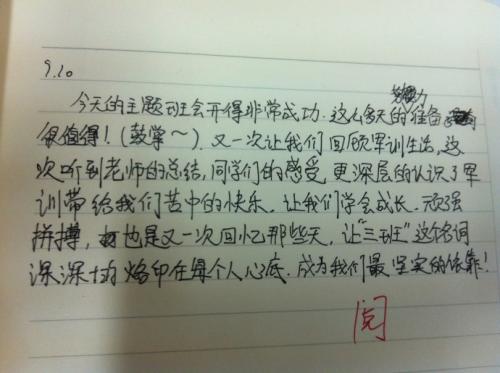 9.10
今天的主题班会开得非常成功.这么多天的努力准备
很值得!(鼓掌~).又一次让我们回顾军训生活,这
次听到老师的总结,同学们的感受,更深层的认识了军
训带给我们苦中的快乐.让我们学会成长.顽强
拼搏,也是又一次回忆那些天,让"三班"这个名词
深深的烙印在每个人心底.成为我们最坚实的依靠!
阅